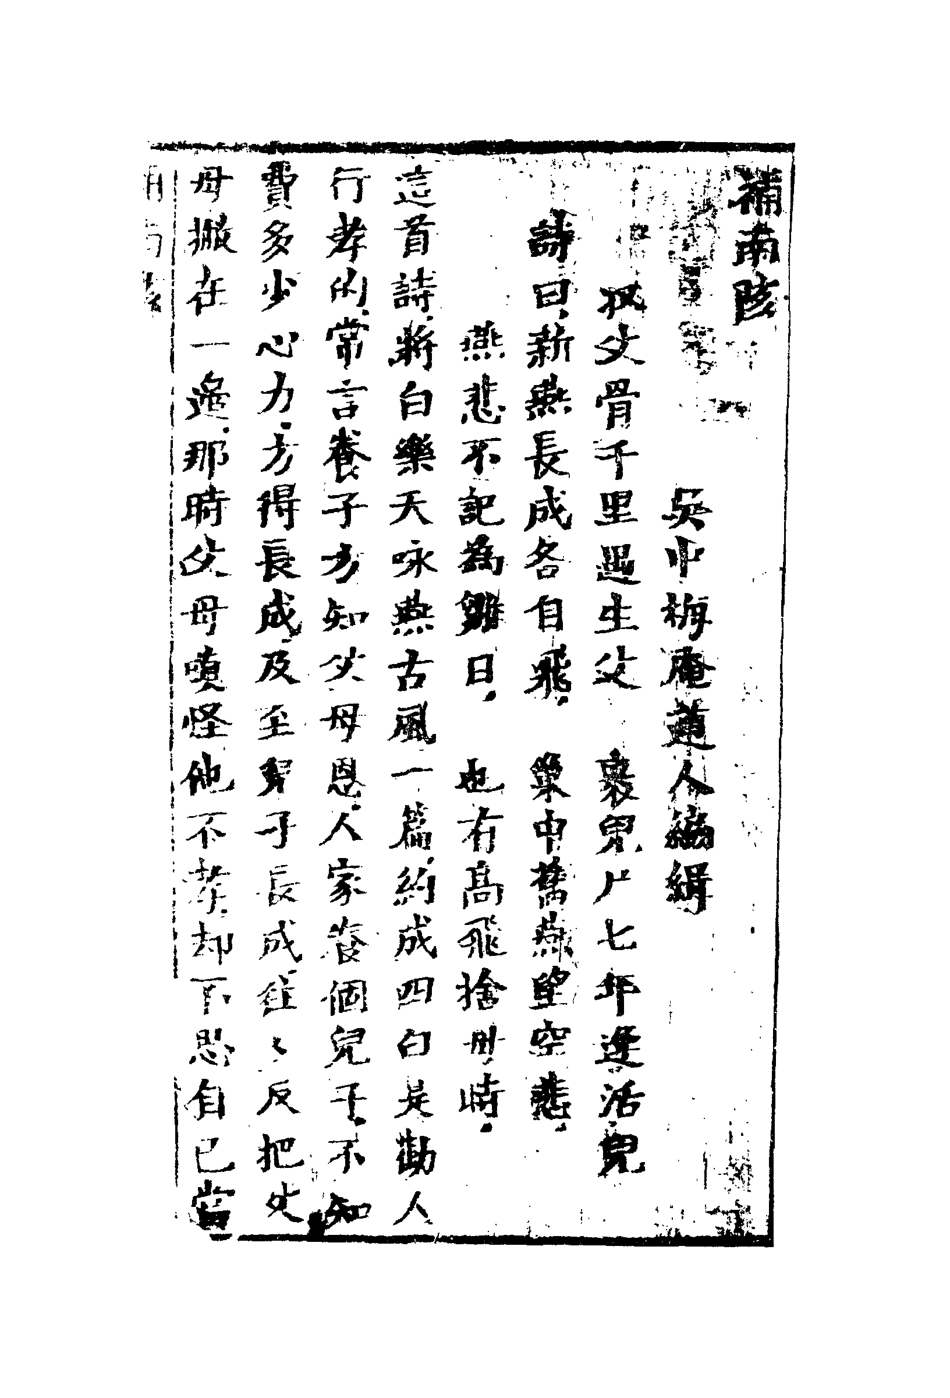 補南陔
吳中梅庵道人編緝
收父骨千里遇生父　裹兒尸七年逢活兒
詩曰新燕長成各自飛　巢中舊燕望空悲
燕悲不記為雛日　也有高飛捨母時
這首詩將白樂天咏燕古風一篇約成四句是勸人
行孝的常言養子方知父母恩人家養個兒子不知
費多少心力方得長成及至兒子長成往々反把父
母撇在一邊那時父母嗔怪他不孝却不思自己當